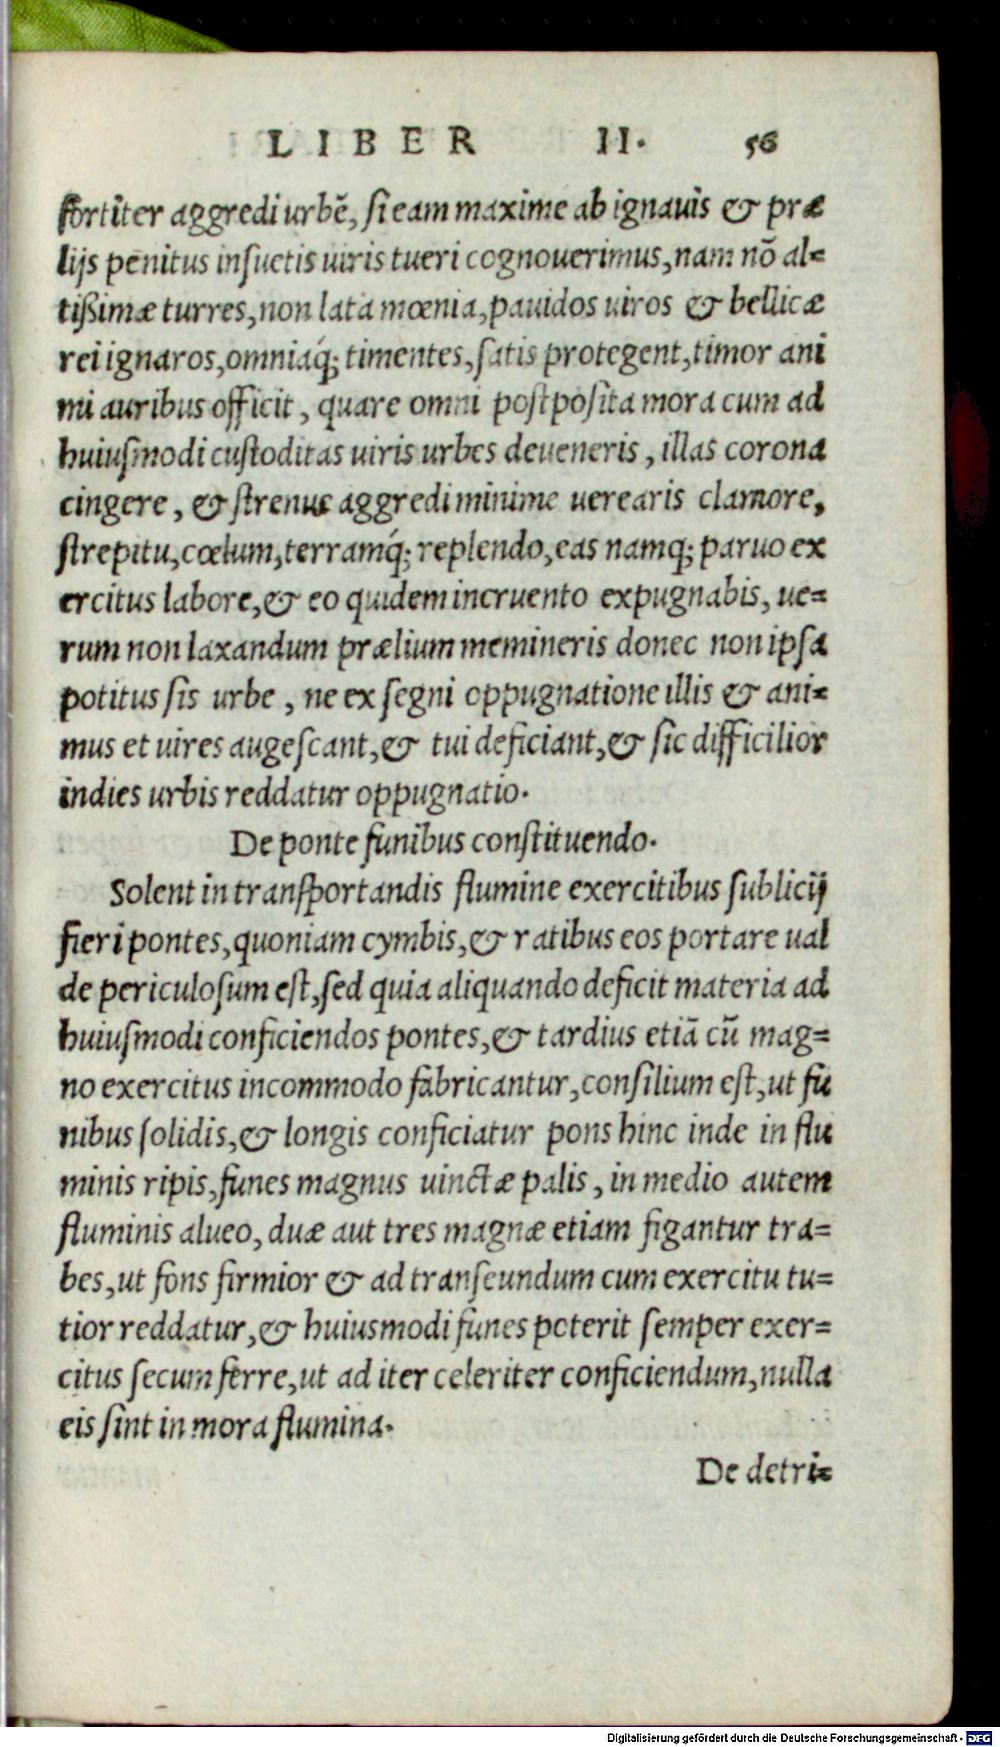 LIBER II. 56
fortiter aggredi urbē, si eam maxime ab ignauis & præ
lijs penitus insuetis uiris tueri cognouerimus, nam nō al=
tißimæ turres, non lata mœnia, pauidos uiros & bellicæ
rei ignaros, omniaq́; timentes, satis protegent, timor ani
mi auribus officit, quare omni postposita mora cum ad
huiusmodi custoditas uiris urbes deueneris, illas corona
cingere, & strenue aggredi minime uerearis clamore,
strepitu, cœlum, terramq́; replendo, eas namq; paruo ex
ercitus labore, & eo quidem incruento expugnabis, ue=
rum non laxandum prælium memineris donec non ipsa
potitus sis urbe, ne ex segni oppugnatione illis & ani=
mus et uires augescant, & tui deficiant, & sic difficilior
indies urbis reddatur oppugnatio.
De ponte funibus constituendo.
Solent in transportandis flumine exercitibus sublicij
fieri pontes, quoniam cymbis, & ratibus eos portare ual
de periculosum est, sed quia aliquando deficit materia ad
huiusmodi conficiendos pontes, & tardius etiā cū mag=
no exercitus incommodo fabricantur, consilium est, ut fu
nibus solidis, & longis conficiatur pons hinc inde in flu
minis ripis, funes magnus uinctæ palis, in medio autem
fluminis alueo, duæ aut tres magnæ etiam figantur tra=
bes, ut fons firmior & ad transeundum cum exercitu tu=
tior reddatur, & huiusmodi funes poterit semper exer=
citus secum ferre, ut ad iter celeriter conficiendum, nulla
eis sint in mora flumina.
De detri=
Digitalisierung gefördert durch die Deutsche Forschungsgemeinschaft - DFG